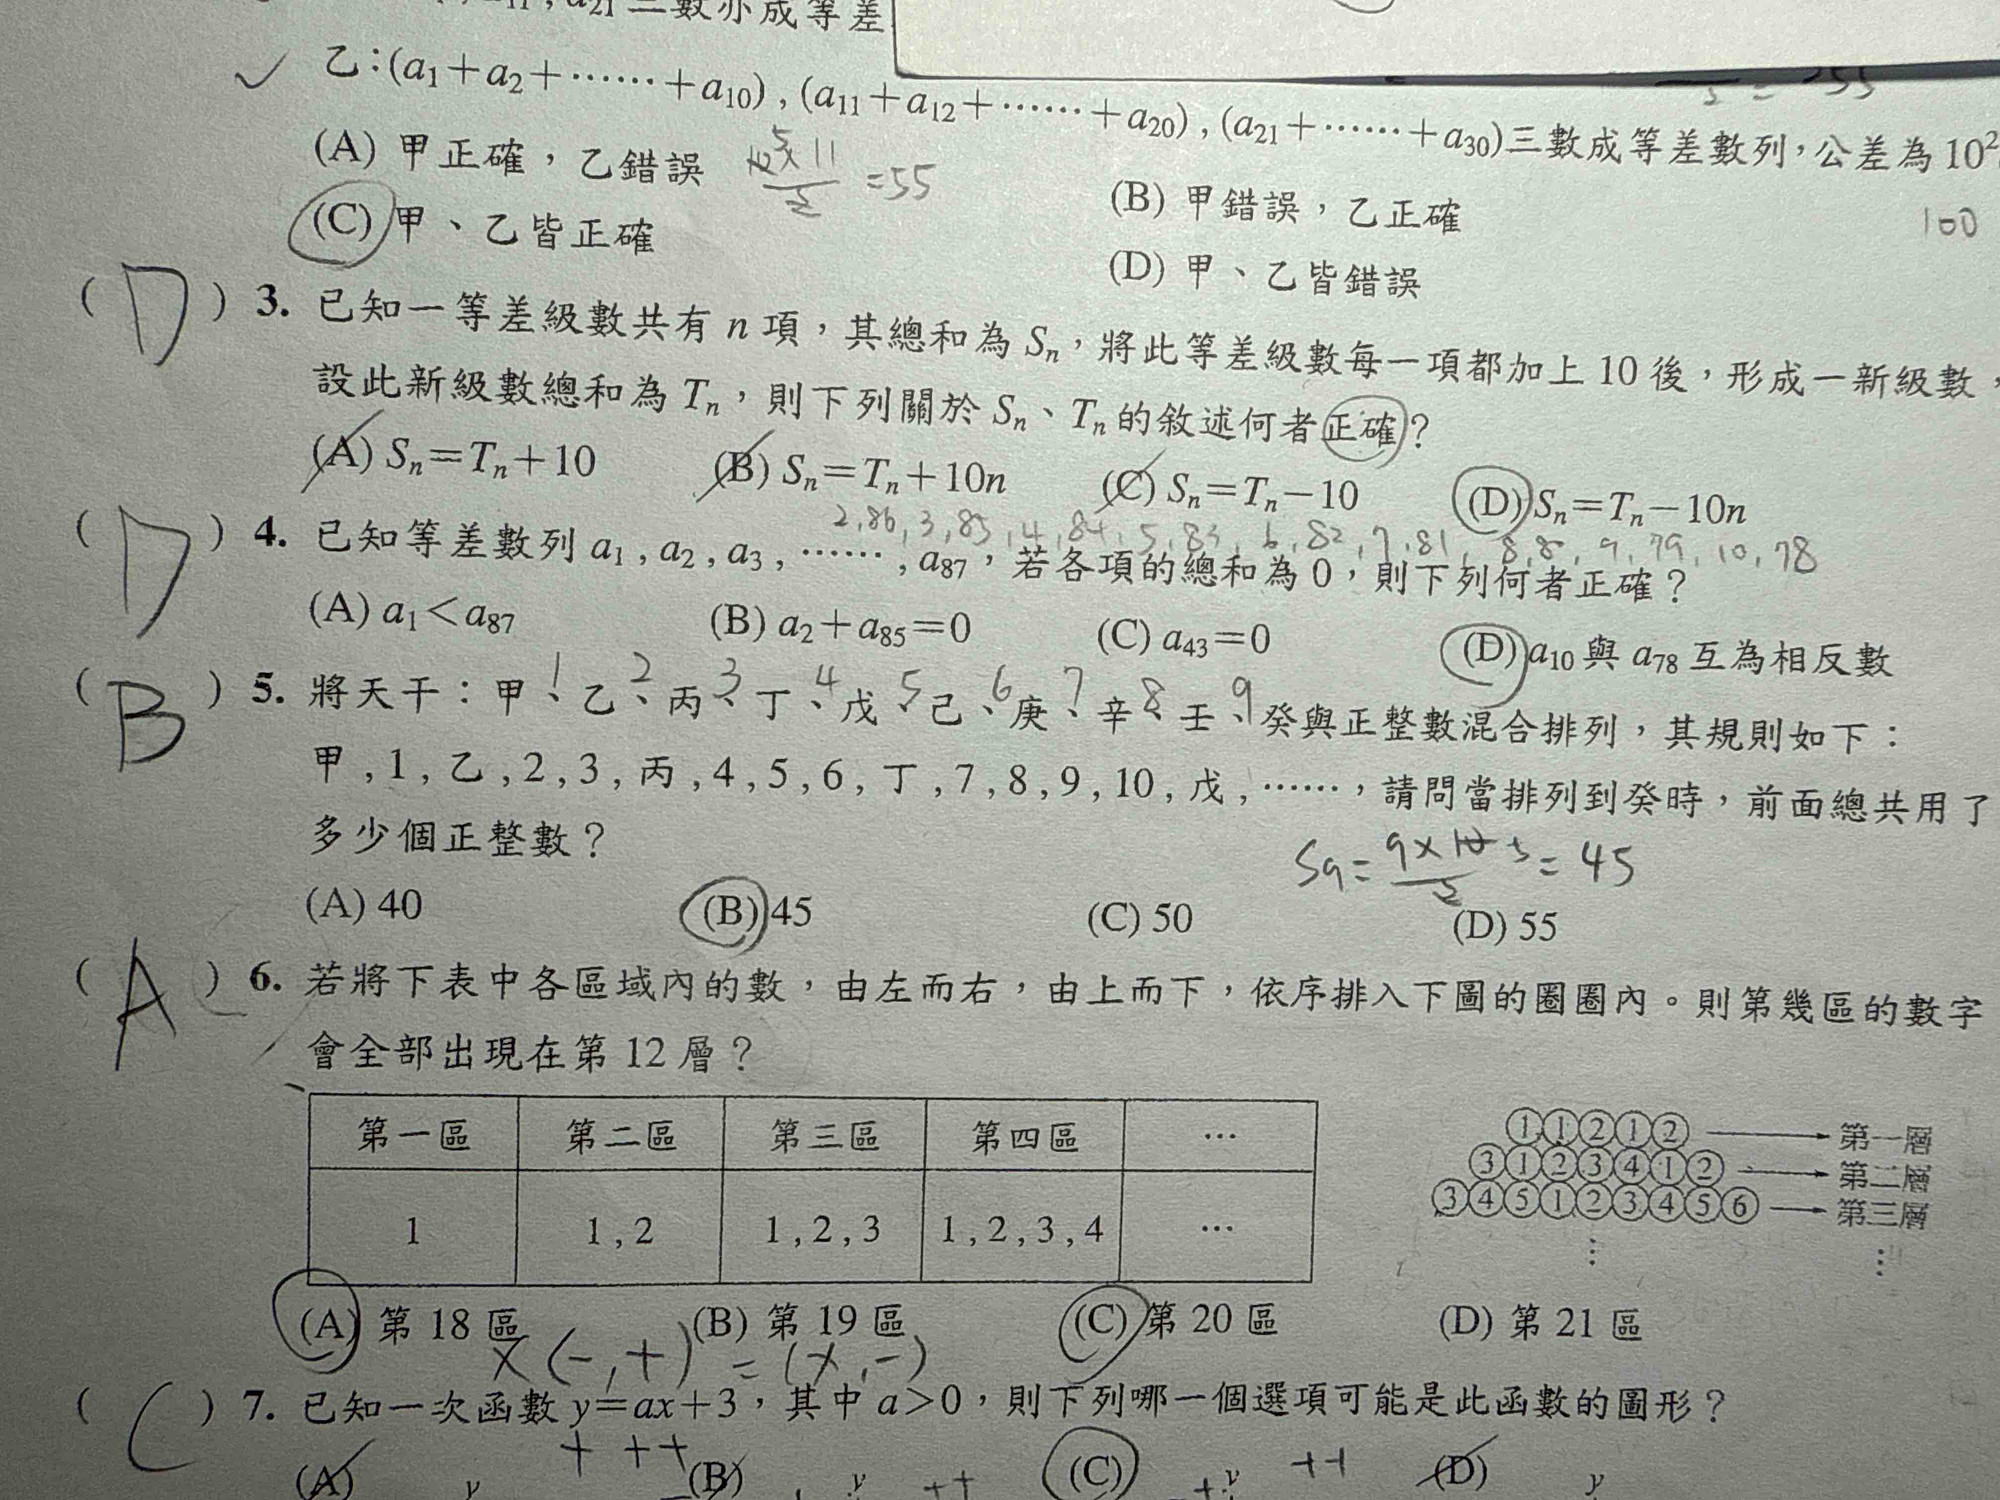 三數亦成等差
乙：(a₁＋a₂＋……＋a₁₀)，(a₁₁＋a₁₂＋……＋a₂₀)，(a₂₁＋……＋a₃₀)三數成等差數列，公差為10²
(A) 甲正確，乙錯誤 =55
(B) 甲錯誤，乙正確
100
(C) 甲、乙皆正確
(D) 甲、乙皆錯誤
( D ) 3. 已知一等差級數共有 n 項，其總和為 Sₙ，將此等差級數每一項都加上 10 後，形成一新級數，
設此新級數總和為 Tₙ，則下列關於 Sₙ、Tₙ 的敘述何者正確？
(A) Sₙ＝Tₙ＋10 (B) Sₙ＝Tₙ＋10n (C) Sₙ＝Tₙ－10 (D) Sₙ＝Tₙ－10n
2,86,3,85,4,84,5,83,6,82,7,81,8,8,9,79,10,78
( D ) 4. 已知等差數列 a₁，a₂，a₃，……，a₈₇，若各項的總和為 0，則下列何者正確？
(A) a₁＜a₈₇ (B) a₂＋a₈₅＝0 (C) a₄₃＝0 (D) a₁₀ 與 a₇₈ 互為相反數
1 2 3 4 5 6 7 8 9
( B ) 5. 將天干：甲、乙、丙、丁、戊、己、庚、辛、壬、癸與正整數混合排列，其規則如下：
甲，1，乙，2，3，丙，4，5，6，丁，7，8，9，10，戊，……，請問當排列到癸時，前面總共用了
多少個正整數？
S₉= 9×10 5 / 2 = 45
(A) 40 (B) 45 (C) 50 (D) 55
( A ) 6. 若將下表中各區域內的數，由左而右，由上而下，依序排入下圖的圈圈內。則第幾區的數字
會全部出現在第 12 層？
第一區 第二區 第三區 第四區 …
1 1，2 1，2，3 1，2，3，4 …
①①②①② 第一層
③①②③④①② 第二層
③④⑤①②③④⑤⑥ 第三層
⋮ ⋮
(A) 第 18 區 (B) 第 19 區 (C) 第 20 區 (D) 第 21 區
( C ) 7. 已知一次函數 y＝ax＋3，其中 a＞0，則下列哪一個選項可能是此函數的圖形？
+ ++
(A) y (B) y ++ (C) + y ++ (D) y